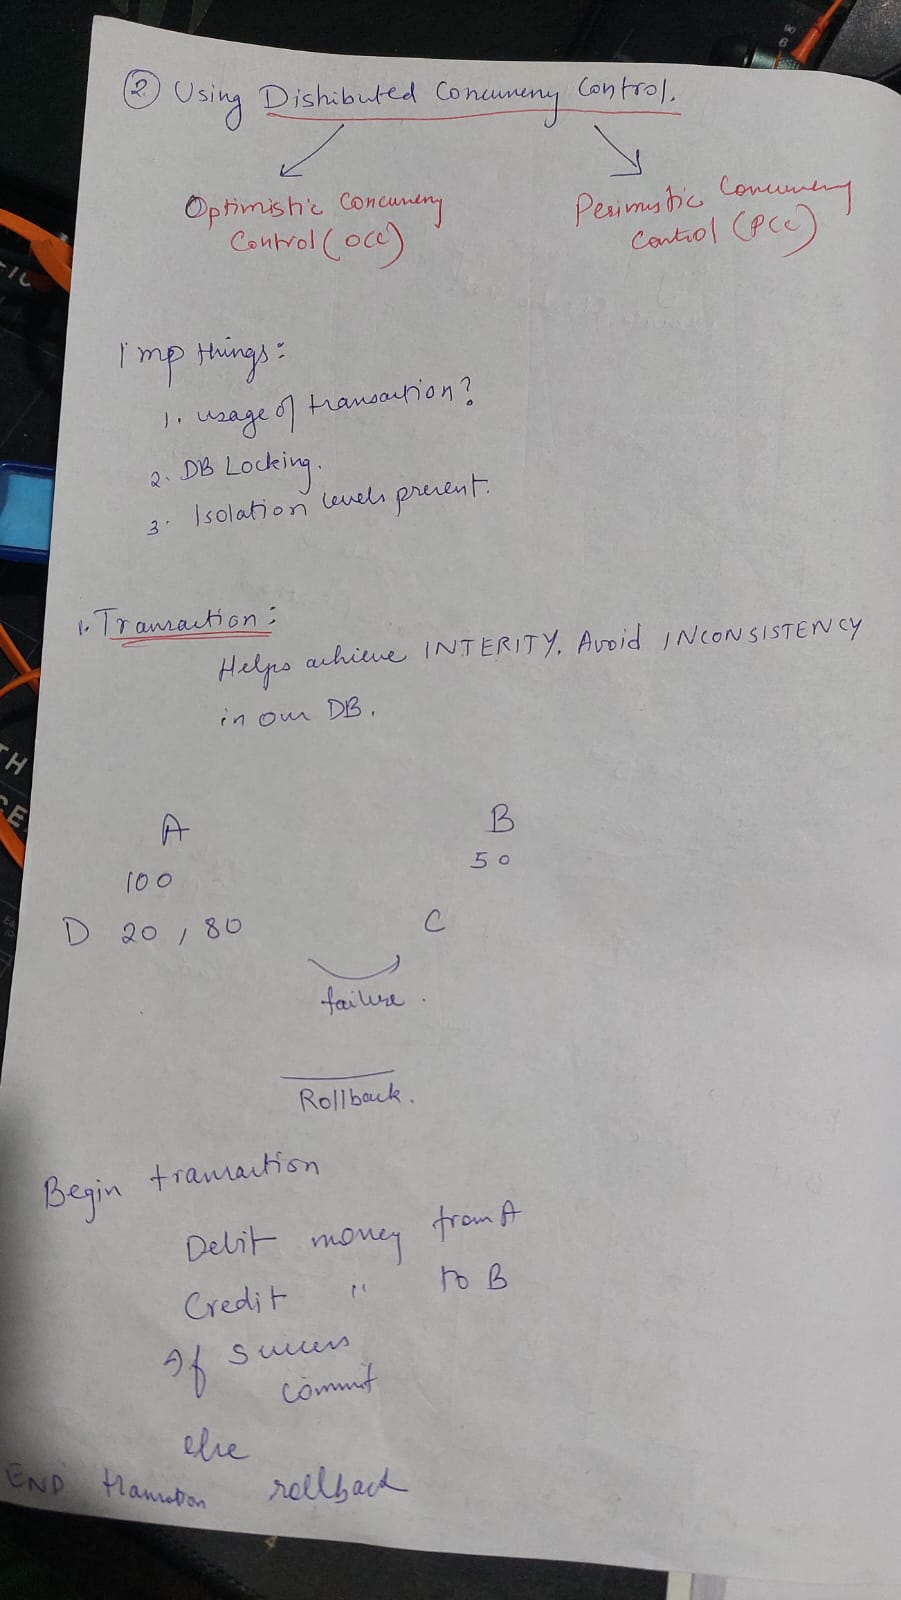 ② Using Distributed Concurrency Control.
Optimistic Concurrency
Control (OCC)
Pesimistic Concurrency
Control (PCC)
Imp things:
1. usage of transaction?
2. DB Locking.
3. Isolation levels present.
1. Transaction:
Helps achieve INTERITY. Avoid INCONSISTENCY
in our DB.
A B
100 50
D 20, 80 C
failure.
Rollback.
Begin transaction
Debit money from A
Credit " to B
If success
commit
else
rollback
END transaction